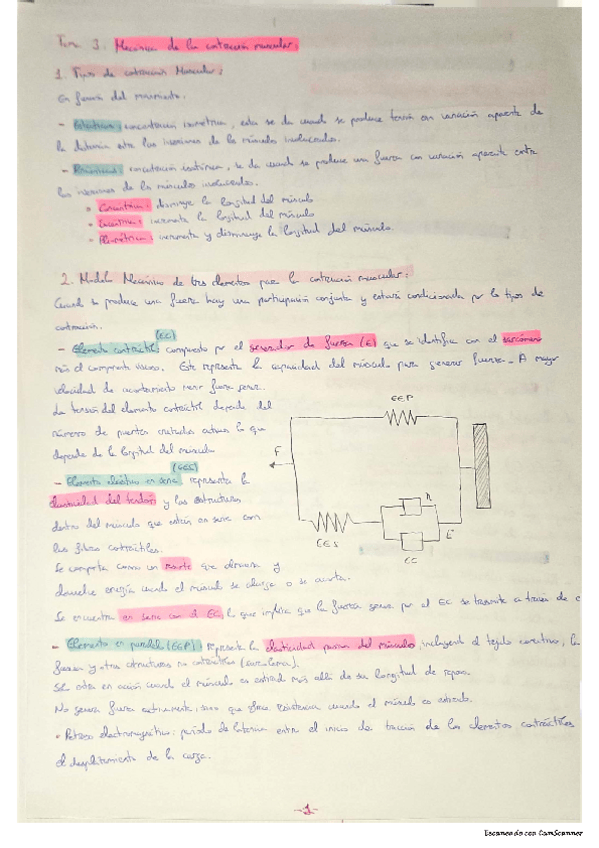 Tema 3. Mecánica de la contracción muscular:
1. Tipos de contracciones Muscular:
En función del movimiento.
- Estáticas: concontracción isométrica, esta se da cuando se produce tensión sin variación aparente de
la distancia entre las inserciones de los músculos involucrados.
- Dinámicas: concontracción isotónica, se da cuando se produce una fuerza con variación aparente entre
las inserciones de los músculos involucrados.
Concéntrica: disminuye la longitud del músculo
Excéntrica: incrementa la longitud del músculo
Pliométrica: incrementa y disminuye la longitud del músculo.
2. Modelo Mecánico de tres elementos para la contracción muscular:
Cuando se produce una fuerza hay una participación conjunta y estará condicionada por los tipos de
contracción.
(EC)
- Elemento contráctil: compuesto por el generador de fuerza (E) que se identifica con el sarcómero
más el componente viscoso. Este representa la capacidad del músculo para generar fuerza. A mayor
velocidad de acortamiento menor fuerza genera.
La tensión del elemento contráctil depende del
número de puentes cruzados activos lo que
depende de la longitud del músculo
(EES)
- Elemento elástico en serie: representa la
elasticidad del tendón y las estructuras
dentro del músculo que están en serie con
las fibras contráctiles.
Se comporta como un muelle que almacena y
devuelve energía cuando el músculo se alarga o se acorta.
EEP
F
R
EES
E
EC
Se encuentra en serie con el EC, lo que implica que la fuerza generada por el EC se transmite a través de e
- Elemento en paralelo (EEP): representa la elasticidad pasiva del músculo, incluyendo el tejido conectivo, la
fascia y otras estructuras no contráctiles (sarcolema).
Sólo entra en acción cuando el músculo es estirado más allá de su longitud de reposo.
No genera fuerza activamente, sino que ofrece resistencia cuando el músculo es estirado.
- Retraso electromagnético: período de latencia entre el inicio de tracción de los elementos contráctiles
el desplazamiento de la carga.
-1-
Escaneado con CamScanner